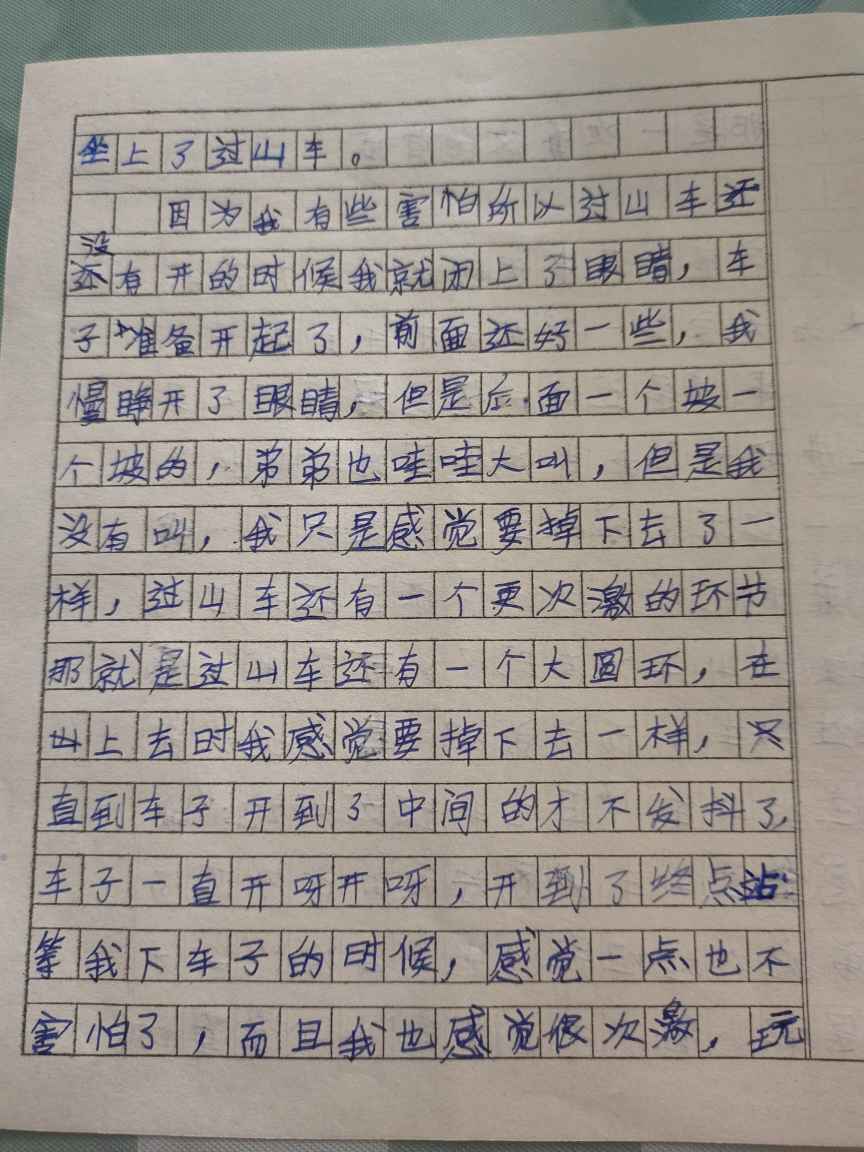 坐上了过山车。
因为我有些害怕所以过山车还
没
还有开的时候我就闭上了眼睛，车
子准备开起了，前面还好一些，我
慢睁开了眼睛，但是后面一个坡一
个坡的，弟弟也哇哇大叫，但是我
没有叫，我只是感觉要掉下去了一
样，过山车还有一个更次激的环节
那就是过山车还有一个大圆环，在
上去时我感觉要掉下去一样，
直到车子开到了中间的才不发抖了，
车子一直开呀开呀，开到了终点站
等我下车子的时候，感觉一点也不
害怕了，而且我也感觉很次激，玩